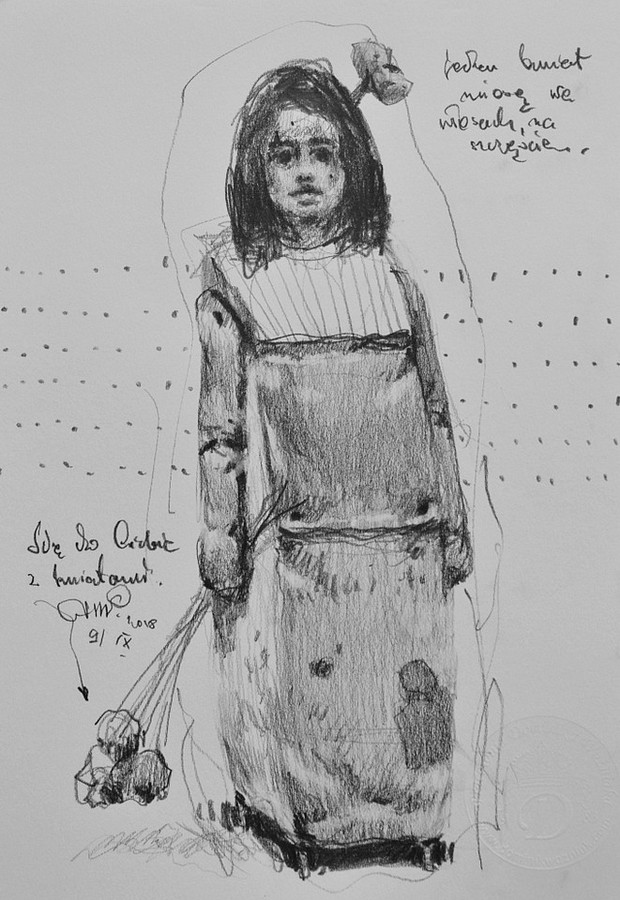 Jeden kwiat
niosę we
włosach, na
szczęście.
Idę do Ciebie
z kwiatami.
2018
9/ IX